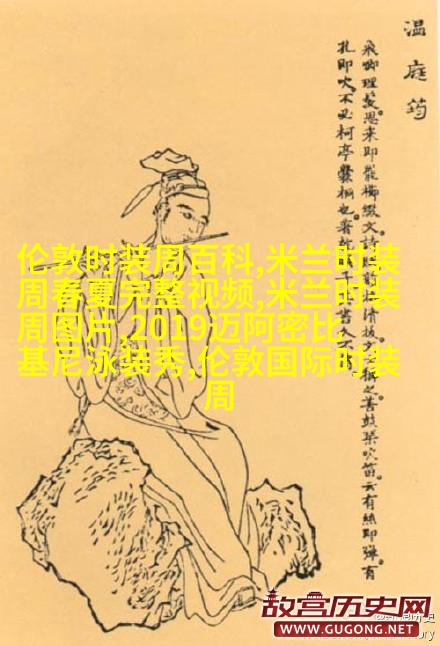 温庭筠
飛卿理髮思来即罷櫛綴文
孔即吹不必柯亭爨桐也著
善鼓琴吹笛云有絲即彈有
伦敦时装周百科,米兰时装
周春夏完整视频,米兰时装
周图片,2019迈阿密比
基尼泳装秀,伦敦国际时装
周
故宫历史网
WWW.GUGONG.NET